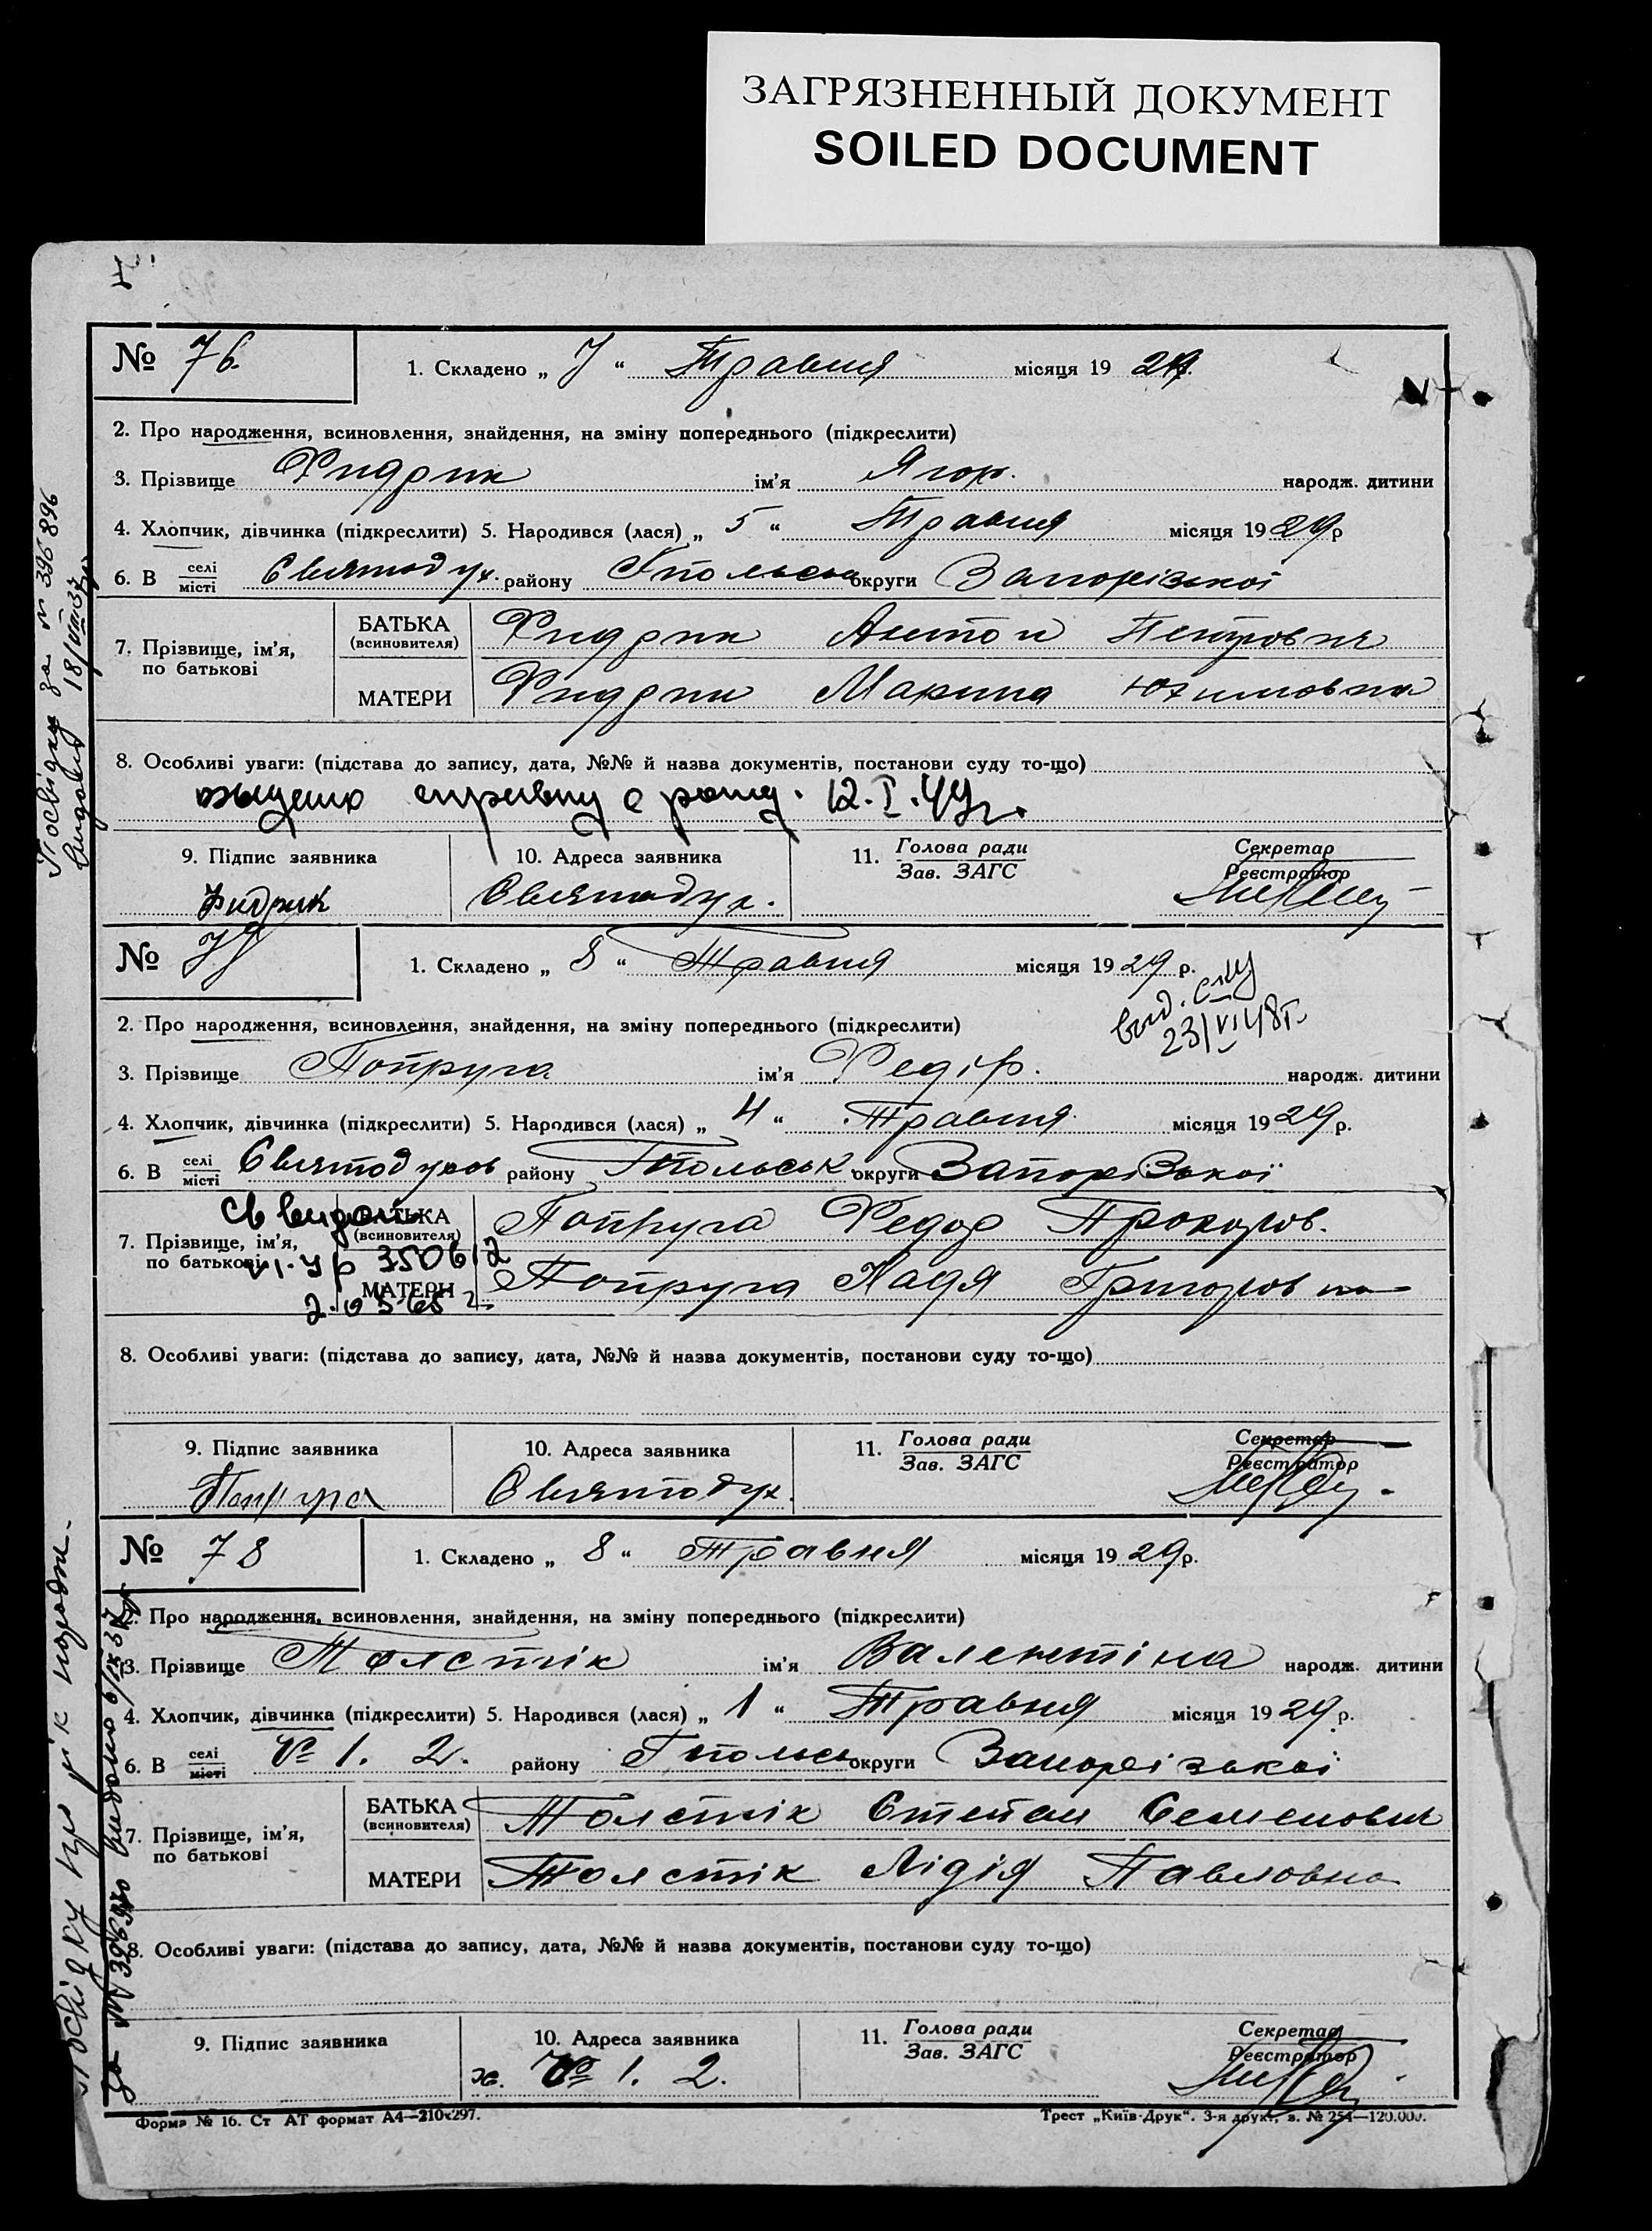 ЗАГРЯЗНЕННЫЙ ДОКУМЕНТ
SOILED DOCUMENT
№ 76. 1. Складено „ 7 “ Травня місяця 19 29
2. Про народження, всиновлення, знайдення, на зміну попереднього (підкреслити)
3. Прізвище Фидрик ім'я Ягор. народж. дитини
4. Хлопчик, дівчинка (підкреслити) 5. Народився (лася) „ 5 “ Травня місяця 19 29 р
6. В селі місті Святодух. району Гпольськ округи Запорізької
7. Прізвище, ім'я, по батькові
БАТЬКА (всиновителя) Фидрик Антон Петрович
МАТЕРИ Фидрик Марина Юхимовна
8. Особливі уваги: (підстава до запису, дата, №№ й назва документів, постанови суду то-що)
справку о рожд. 12.I.49г.
9. Підпис заявника 10. Адреса заявника 11. Голова ради Зав. ЗАГС Секретар Реєстратор
Фидрик Святодух.
Посвідку за № 396896
видано 18/VIII 37
№ 77 1. Складено „ 8 “ Травня місяця 19 29 р.
вид. спр
23/VI 48г.
2. Про народження, всиновлення, знайдення, на зміну попереднього (підкреслити)
3. Прізвище Попруга ім'я Федір. народж. дитини
4. Хлопчик, дівчинка (підкреслити) 5. Народився (лася) „ 4 “ Травня місяця 19 29 р.
6. В селі місті Святодухов району Гпольськ округи Запорізької
7. Прізвище, ім'я, по батькові
БАТЬКА (всиновителя) Попруга Федор Прохоров.
МАТЕРИ Попруга Надя Григоров на
Св видано
350612
8. Особливі уваги: (підстава до запису, дата, №№ й назва документів, постанови суду то-що)
9. Підпис заявника 10. Адреса заявника 11. Голова ради Зав. ЗАГС Секретар Реєстратор
Попруга Святодух.
№ 78 1. Складено „ 8 “ Травня місяця 19 29 р.
2. Про народження, всиновлення, знайдення, на зміну попереднього (підкреслити)
3. Прізвище Толстік ім'я Валентіна народж. дитини
4. Хлопчик, дівчинка (підкреслити) 5. Народився (лася) „ 1 “ Травня місяця 19 29 р.
6. В селі місті № 1. 2. району Гпольсь округи Запорізької
7. Прізвище, ім'я, по батькові
БАТЬКА (всиновителя) Толстік Степан Семенович
МАТЕРИ Толстік Лідія Павловна
8. Особливі уваги: (підстава до запису, дата, №№ й назва документів, постанови суду то-що)
9. Підпис заявника 10. Адреса заявника 11. Голова ради Зав. ЗАГС Секретар Реєстратор
х. № 1. 2.
Посвідку про рік народж.
за № 396940 видано 6/IX 37р
Форма № 16. Ст АТ формат А4—210х297.
Трест „Київ-Друк“. 3-я друк., з. № 254—120.000.